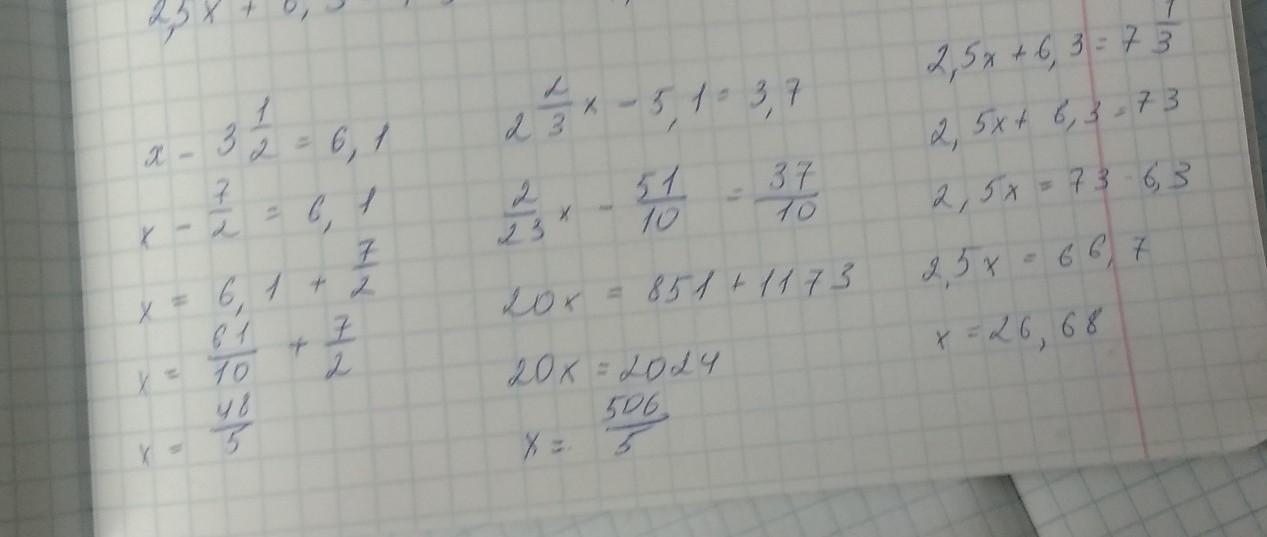 2,5x + 6,3
x - 3 1/2 = 6,1
x - 7/2 = 6,1
x = 6,1 + 7/2
x = 61/10 + 7/2
x = 48/5
2 2/3 x - 5,1 = 3,7
2/23 x - 51/10 = 37/10
20x = 851 + 1173
20x = 2024
x = 506/5
2,5x + 6,3 = 7 1/3
2,5x + 6,3 = 73
2,5x = 73 - 6,3
2,5x = 66,7
x = 26,68